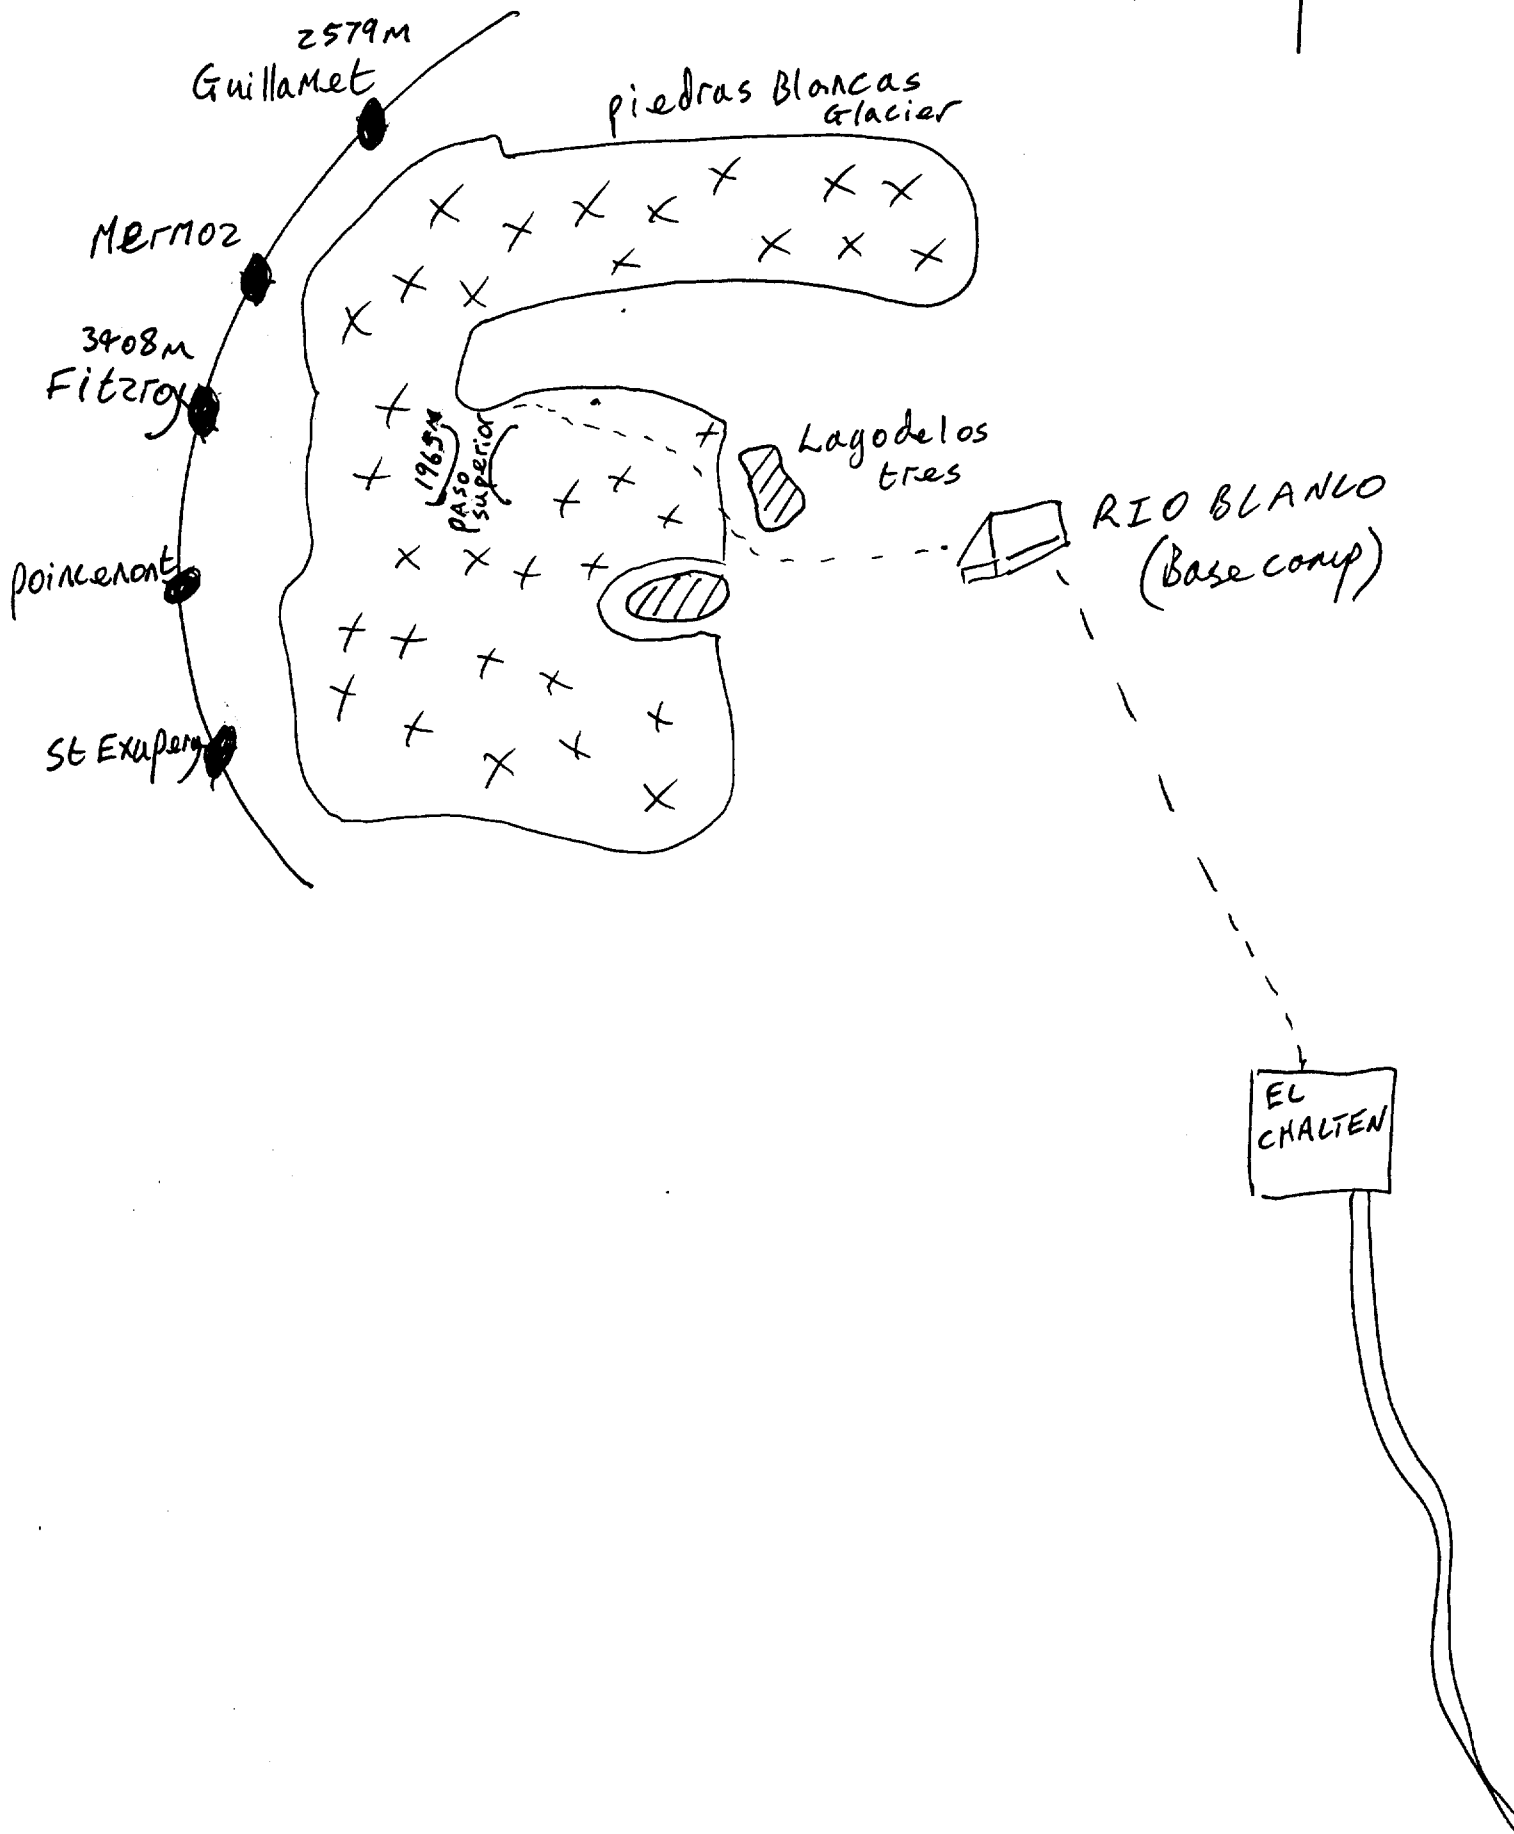 2579M
Guillamet
piedras Blancas
Glacier
Mermoz
3408M
Fitzroy
1965M
PASO
superior
Lagodelos
tres
RIO BLANCO
(Base camp)
Poincenont
St Exupery
EL
CHALTEN